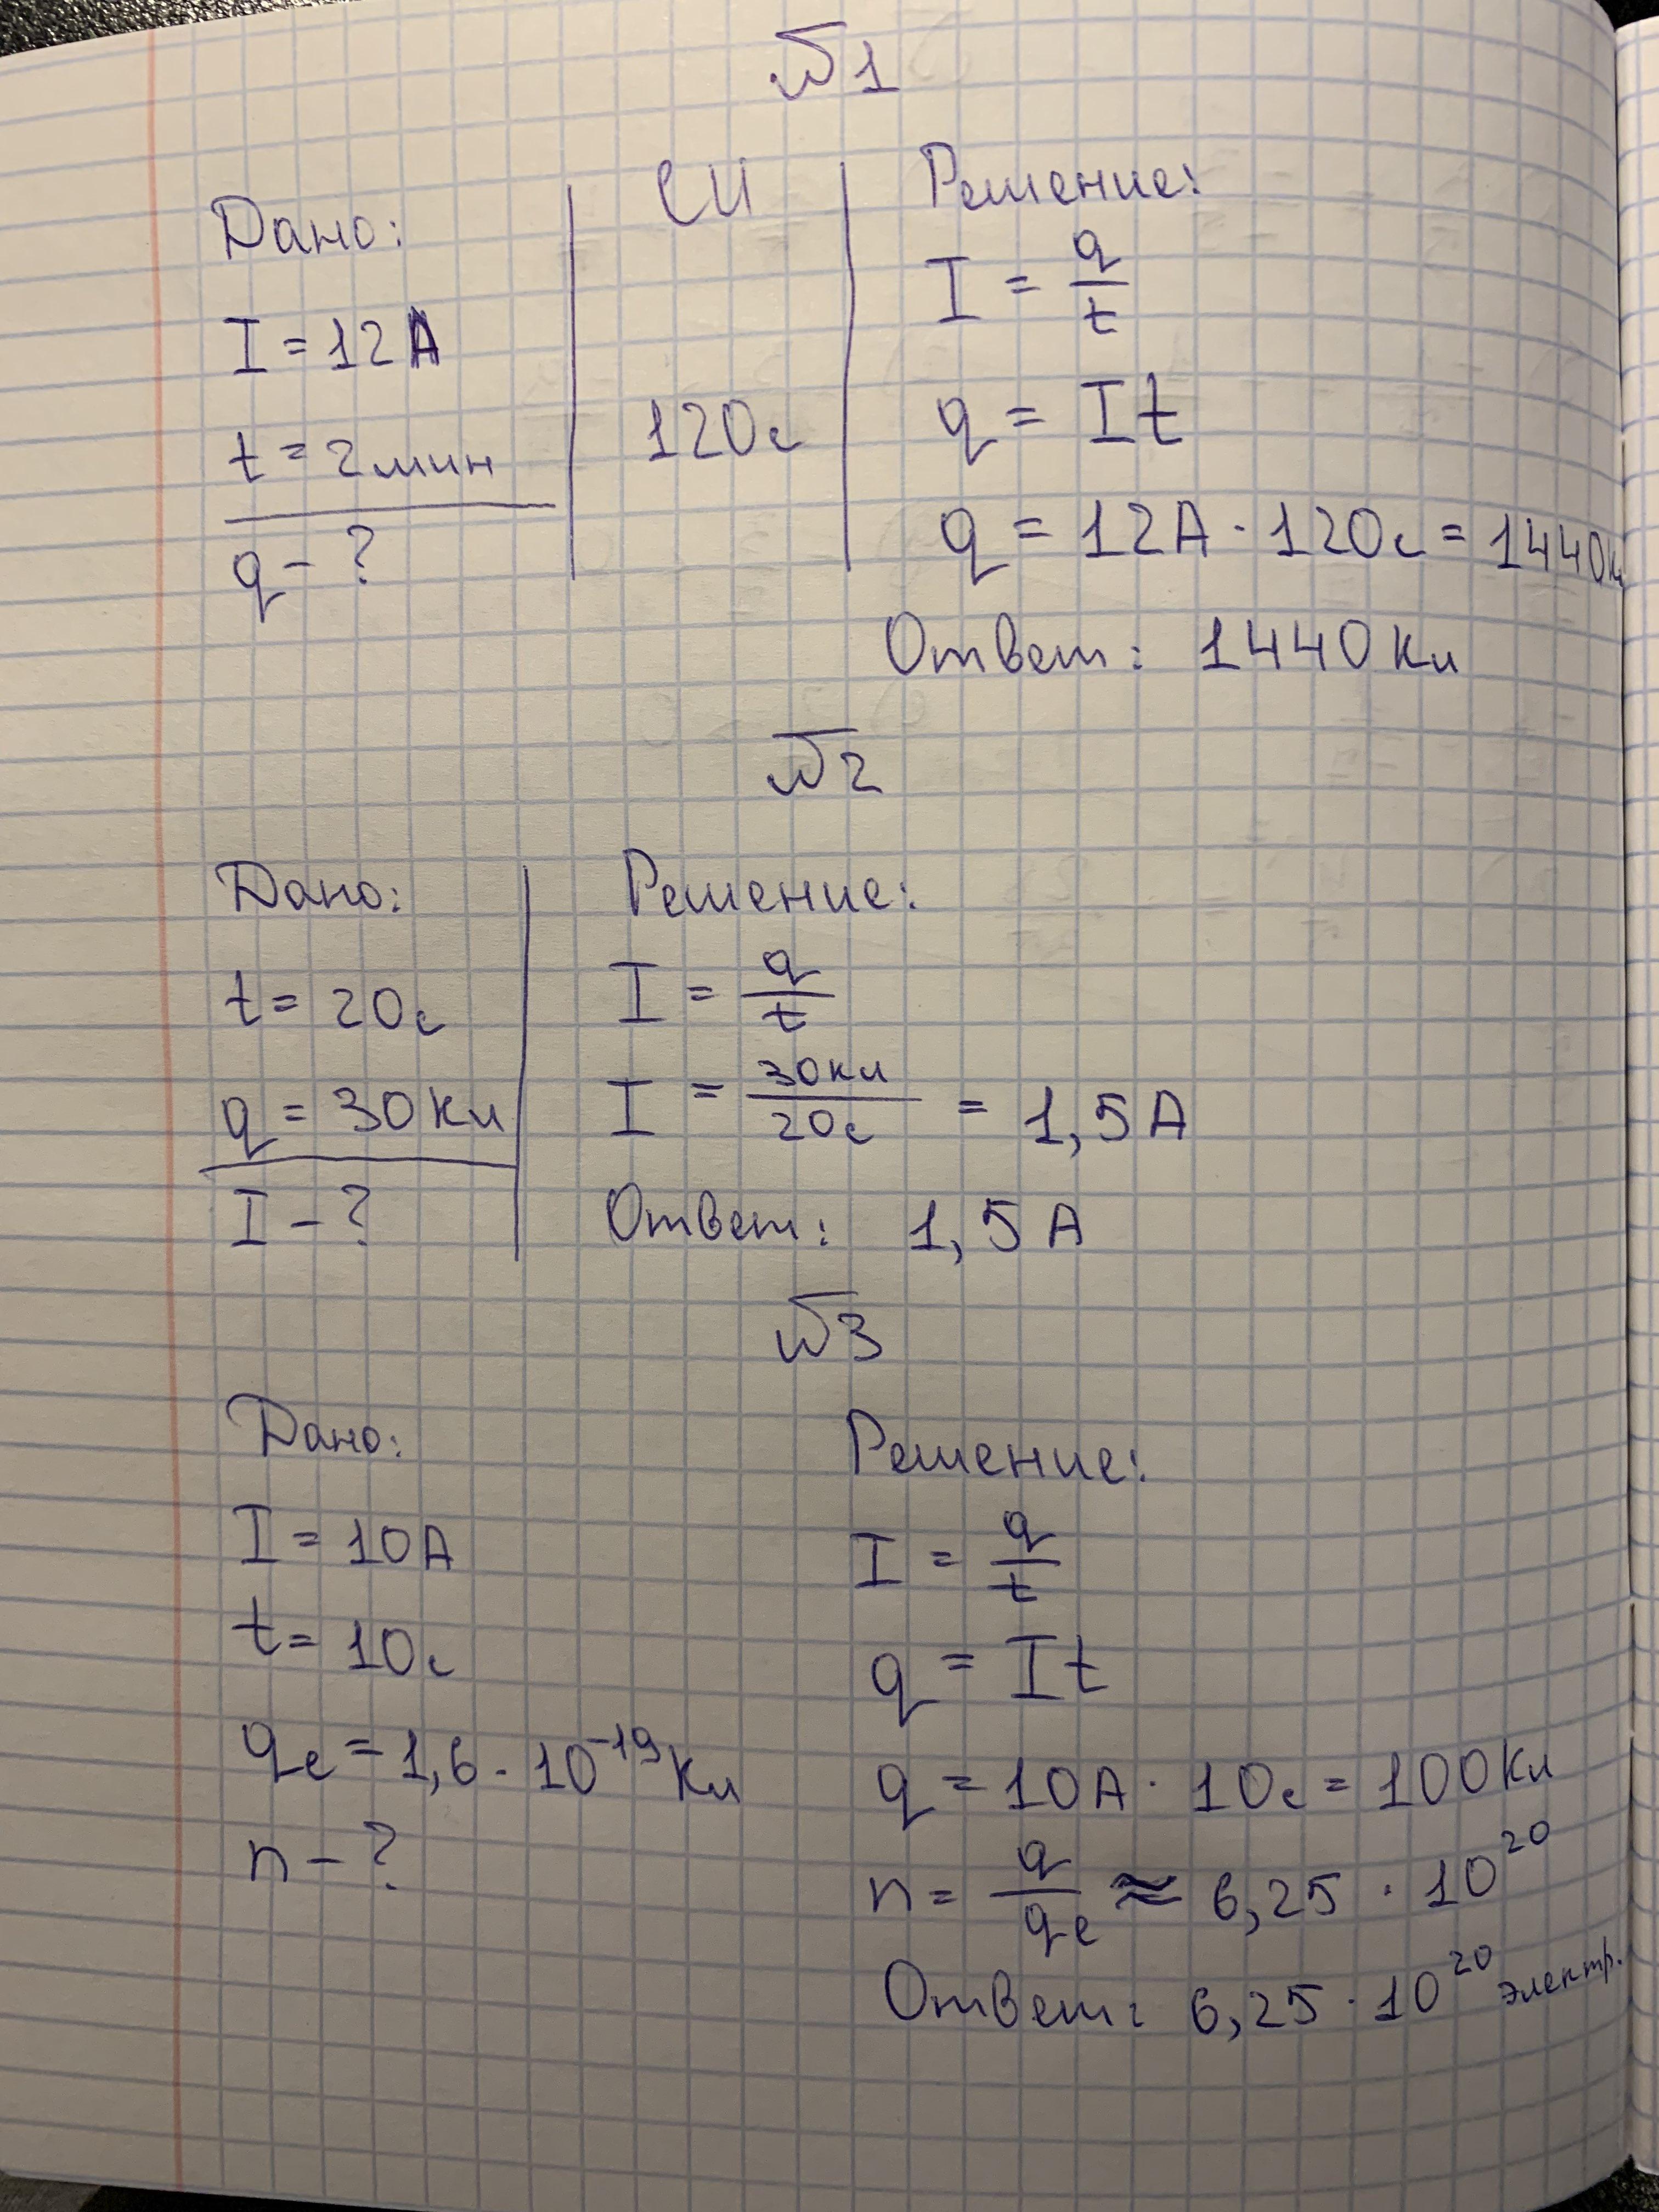 №1
Дано:
I = 12А
t = 2мин
q - ?
СИ
120с
Решение:
I = q/t
q = It
q = 12А · 120с = 1440Кл
Ответ: 1440 Кл
№2
Дано:
t = 20с
q = 30 Кл
I - ?
Решение:
I = q/t
I = 30кл/20с = 1,5 А
Ответ: 1,5 А
№3
Дано:
I = 10А
t = 10с
qe = 1,6 · 10⁻¹⁹ Кл
n - ?
Решение:
I = q/t
q = It
q = 10А · 10с = 100Кл
n = q/qe ≈ 6,25 · 10²⁰
Ответ: 6,25 · 10²⁰ электр.